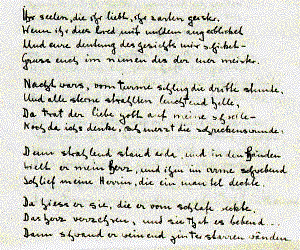 Ihr seelen, die ihr liebt, ihr zarten geister.
Wenn ihr dies lied mit mildem aug erblicket
Und eure deutung des gesichts mir schicket-
Gruss euch im namen des der euer meister.
Nacht wars, vom turme schlug die dritte stunde,
Und alle sterne strahlten leuchtend helle,
Da trat der liebe gott auf meine schwelle-
Noch da ichs denke, schmerzt die schreckenswunde.
Denn strahlend stand er da, und in den händen
Hielt er mein herz, und ihm im arme schwebend
Schlief meine Herrin, die ein mantel deckte.
Da hiess er sie, die er vom schlafe weckte,
Das herz verzehren, und sie that es bebend...
Dann schwand er weinend hinter starren wänden